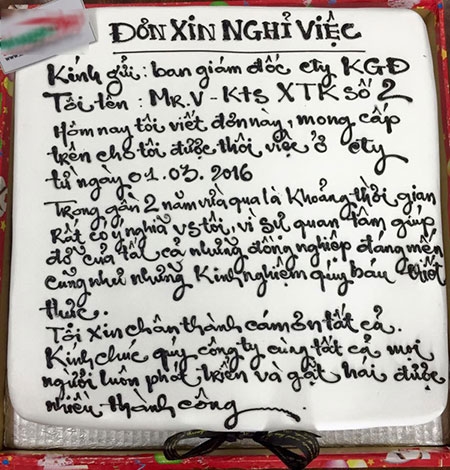 ĐƠN XIN NGHỈ VIỆC
Kính gửi: ban giám đốc cty KGĐ
Tôi tên: MR.V - KtS XTK Số 2
Hôm nay tôi viết đơn này, mong cấp
trên cho tôi được thôi việc ở cty
từ ngày 01.03.2016
Trong gần 2 năm vừa qua là Khoảng thời gian
Rất có ý nghĩa vs tôi, vì sự quan tâm giúp
đỡ của tất cả những đồng nghiệp đáng mến
cũng như những Kinh nghiệm qúy báu viết
thực.
Tôi xin chân thành cám ơn tất cả.
Kính chúc qúy công ty cùng tất cả mọi
người luôn phát triển và gặt hái được
nhiều thành công